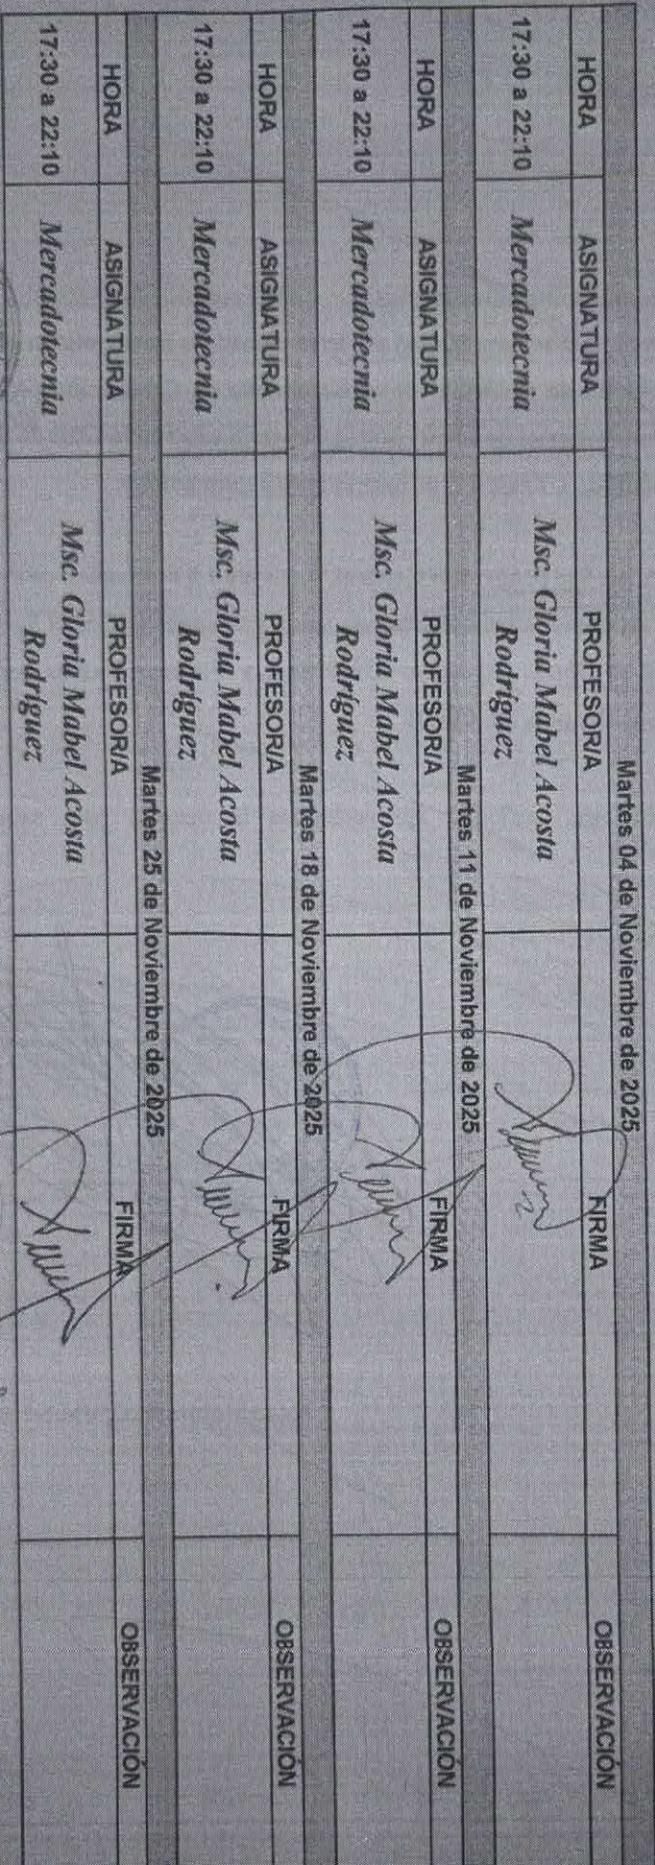 Martes 04 de Noviembre de 2025
HORA ASIGNATURA PROFESOR/A FIRMA OBSERVACIÓN
17:30 a 22:10 Mercadotecnia Msc. Gloria Mabel Acosta
Rodríguez
Martes 11 de Noviembre de 2025
HORA ASIGNATURA PROFESOR/A FIRMA OBSERVACIÓN
17:30 a 22:10 Mercadotecnia Msc. Gloria Mabel Acosta
Rodríguez
Martes 18 de Noviembre de 2025
HORA ASIGNATURA PROFESOR/A FIRMA OBSERVACIÓN
17:30 a 22:10 Mercadotecnia Msc. Gloria Mabel Acosta
Rodríguez
Martes 25 de Noviembre de 2025
HORA ASIGNATURA PROFESOR/A FIRMA OBSERVACIÓN
17:30 a 22:10 Mercadotecnia Msc. Gloria Mabel Acosta
Rodríguez